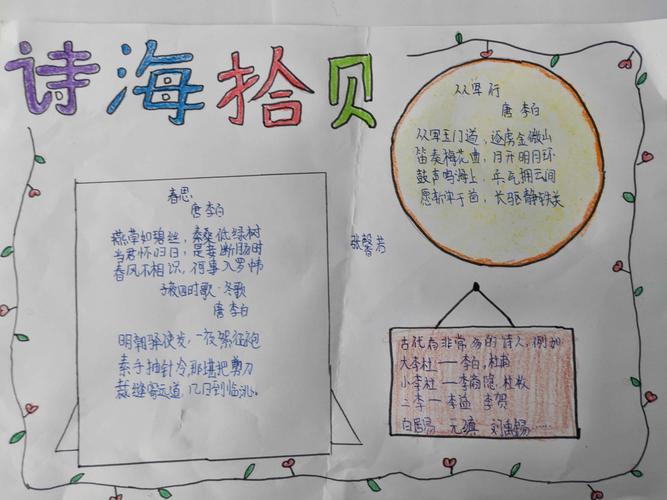 诗海拾贝
春思
唐 李白
燕草如碧丝，秦桑低绿树
当君怀归日，是妾断肠时
春风不相识，何事入罗帏
子夜四时歌·冬歌
唐 李白
明朝驿使发，一夜絮征袍
素手抽针冷，那堪把剪刀
裁缝寄远道，几日到临洮。
张馨芳
从军行
唐 李白
从军玉门道，逐虏金微山
笛奏梅花曲，刀开明月环
鼓声鸣海上，兵气拥云间
愿斩单于首，长驱静铁关
古代有非常多的诗人，例如
大李杜——李白，杜甫
小李杜——李商隐，杜牧
二李——李益 李贺
白居易 元稹 刘禹锡……